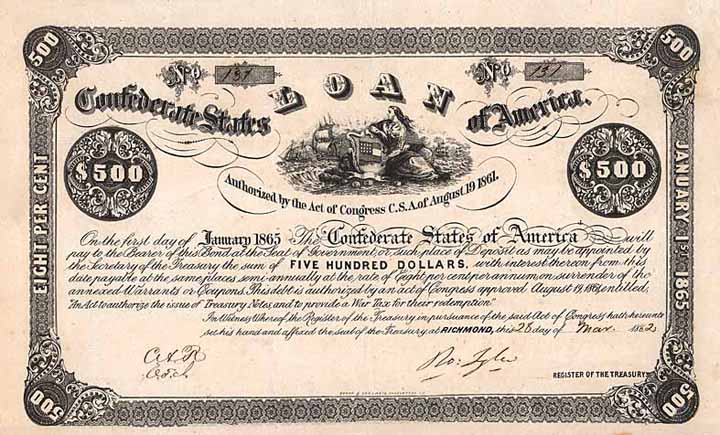 500 500
No 137 No 137
LOAN
Confederate States of America.
$500 $500
EIGHT PER CENT
JANUARY 1st 1865
Authorized by the Act of Congress C.S.A. of August 19 1861.
On the first day of January 1865 The Confederate States of America will
pay to the Bearer of this Bond at the Seat of Government, or such place of Deposit as may be appointed by
the Secretary of the Treasury the sum of FIVE HUNDRED DOLLARS, with interest thereon from this
date payable at the same places semi-annually at the rate of Eight per cent per annum, on surrender of the
annexed Warrants or Coupons. This debt is authorized by an act of Congress approved August 19, 1861 entitled,
"An Act to authorize the issue of Treasury Notes, and to provide a War Tax for their redemption."
In Witness Whereof, the Register of the Treasury in pursuance of the said Act of Congress hath hereunto
set his hand and affixed the seal of the Treasury at RICHMOND, this 28 day of Mar. 1862
Ro: Tyler
REGISTER OF THE TREASURY
500 500